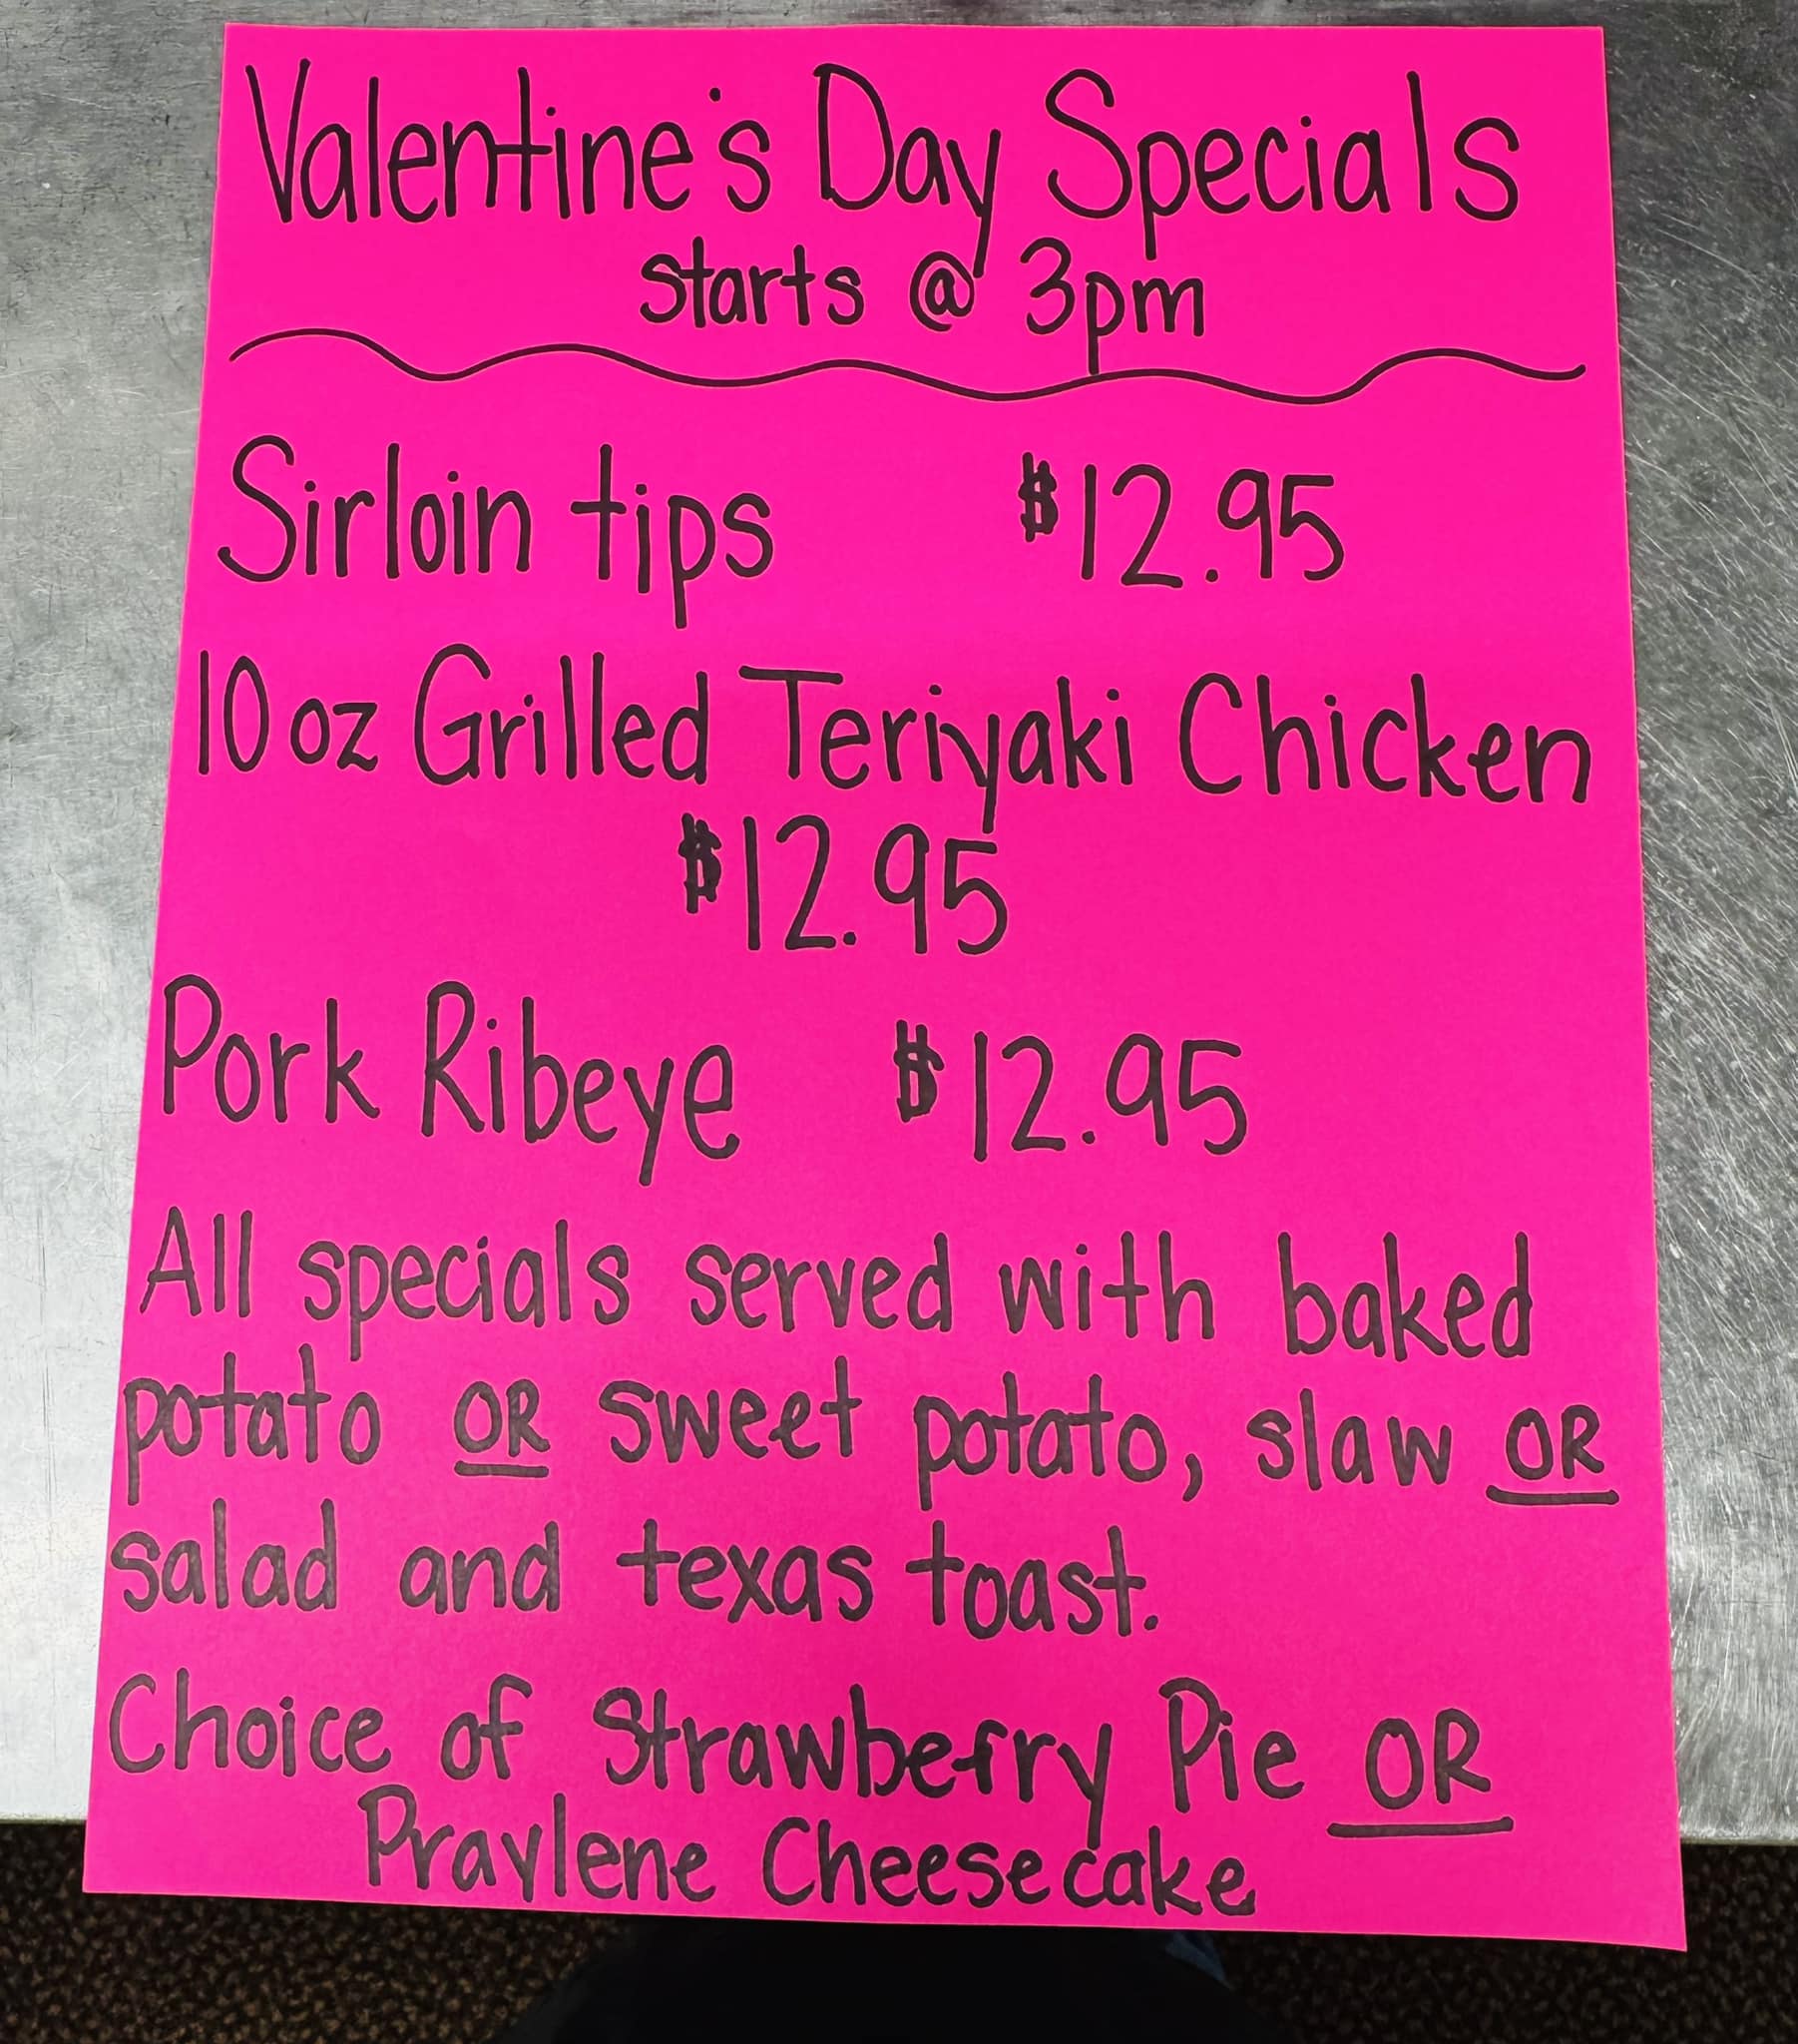 Valentine's Day Specials
starts @ 3pm
Sirloin tips $12.95
10 oz Grilled Teriyaki Chicken
$12.95
Pork Ribeye $12.95
All specials served with baked
potato OR sweet potato, slaw OR
salad and texas toast.
Choice of Strawberry Pie OR
Pravlene Cheesecake